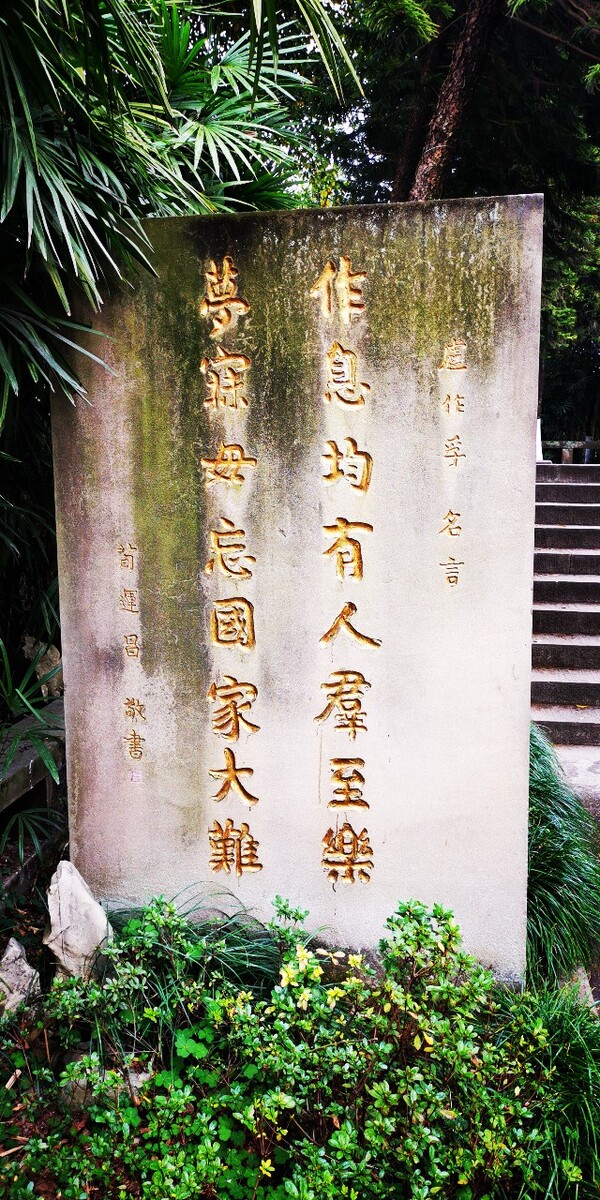 盧作孚 名言
作息均有人羣至樂
夢寐毋忘國家大難
荀運昌 敬書